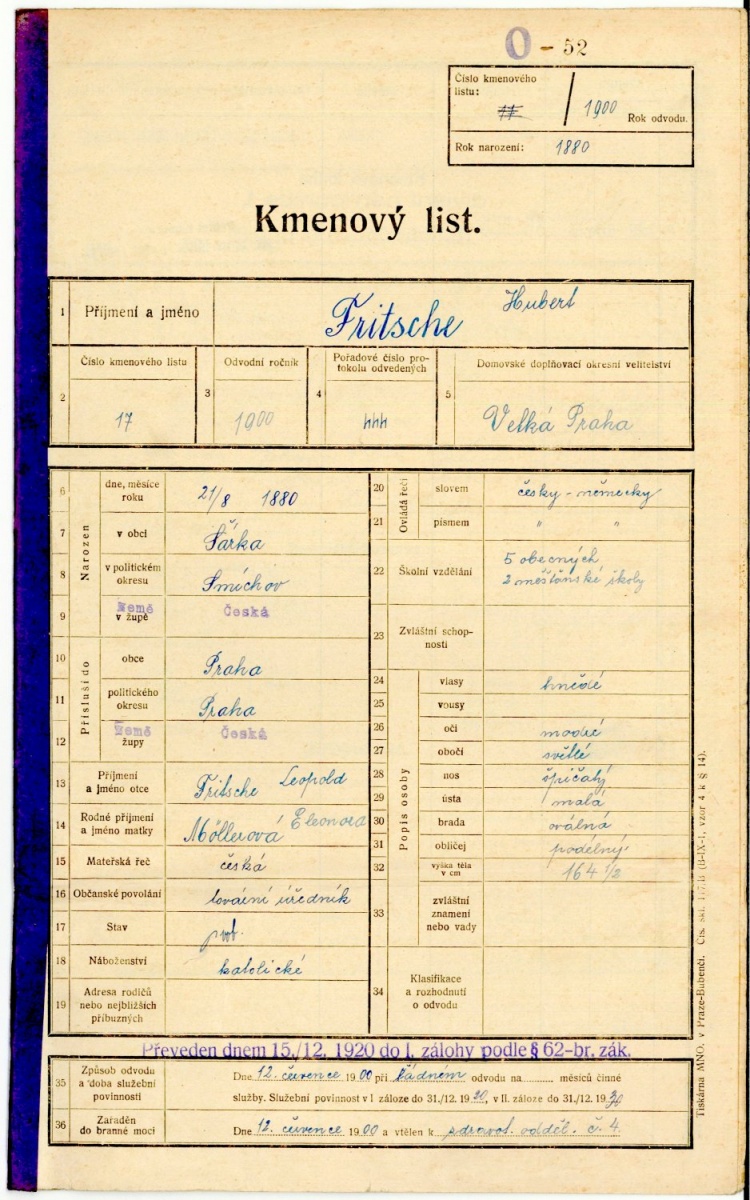 O - 52
Číslo kmenového
listu:
/ 1900
Rok odvodu.
Rok narození: 1880
Kmenový list.
1 Příjmení a jméno Fritsche Hubert
Číslo kmenového listu
Odvodní ročník
Pořadové číslo pro-
tokolu odvedených
Domovské doplňovací okresní velitelství
2 17
3 1900
4
5 Velká Praha
Narozen
6 dne, měsíce
roku 21/8 1880
7 v obci Šárka
8 v politickém
okresu Smíchov
9 v župě Česká
Přísluší do
10 obce Praha
11 politického
okresu Praha
12 župy Česká
13 Příjmení
a jméno otce Fritsche Leopold
14 Rodné příjmení
a jméno matky Möllerová Eleonora
15 Mateřská řeč česká
16 Občanské povolání tovární úředník
17 Stav
18 Náboženství katolické
19 Adresa rodičů
nebo nejbližších
příbuzných
Ovládá řeči
20 slovem česky - německy
21 písmem " "
22 Školní vzdělání 5 obecných
2 měšťanské školy
23 Zvláštní schop-
nosti
Popis osoby
24 vlasy hnědé
25 vousy
26 oči modré
27 obočí světlé
28 nos špičatý
29 ústa malá
30 brada oválná
31 obličej podélný
32 výška těla
v cm 164 1/2
33 zvláštní
znamení
nebo vady
34 Klasifikace
a rozhodnutí
o odvodu
Převeden dnem 15./12. 1920 do I. zálohy podle § 62-br. zák.
35 Způsob odvodu
a doba služební
povinnosti
Dne 12. července 1900 při řádném odvodu na ......... měsíců činné
služby. Služební povinnost v I záloze do 31./12. 1920, v II. záloze do 31./12. 1930
36 Zařaděn
do branné moci
Dne 12. července 1900 a vtělen k zdravot. odděl. č. 4.
Tiskárna MNO. v Praze-Bubenči. Čís. skl. (B-IX-1, vzor 4 k § 14).